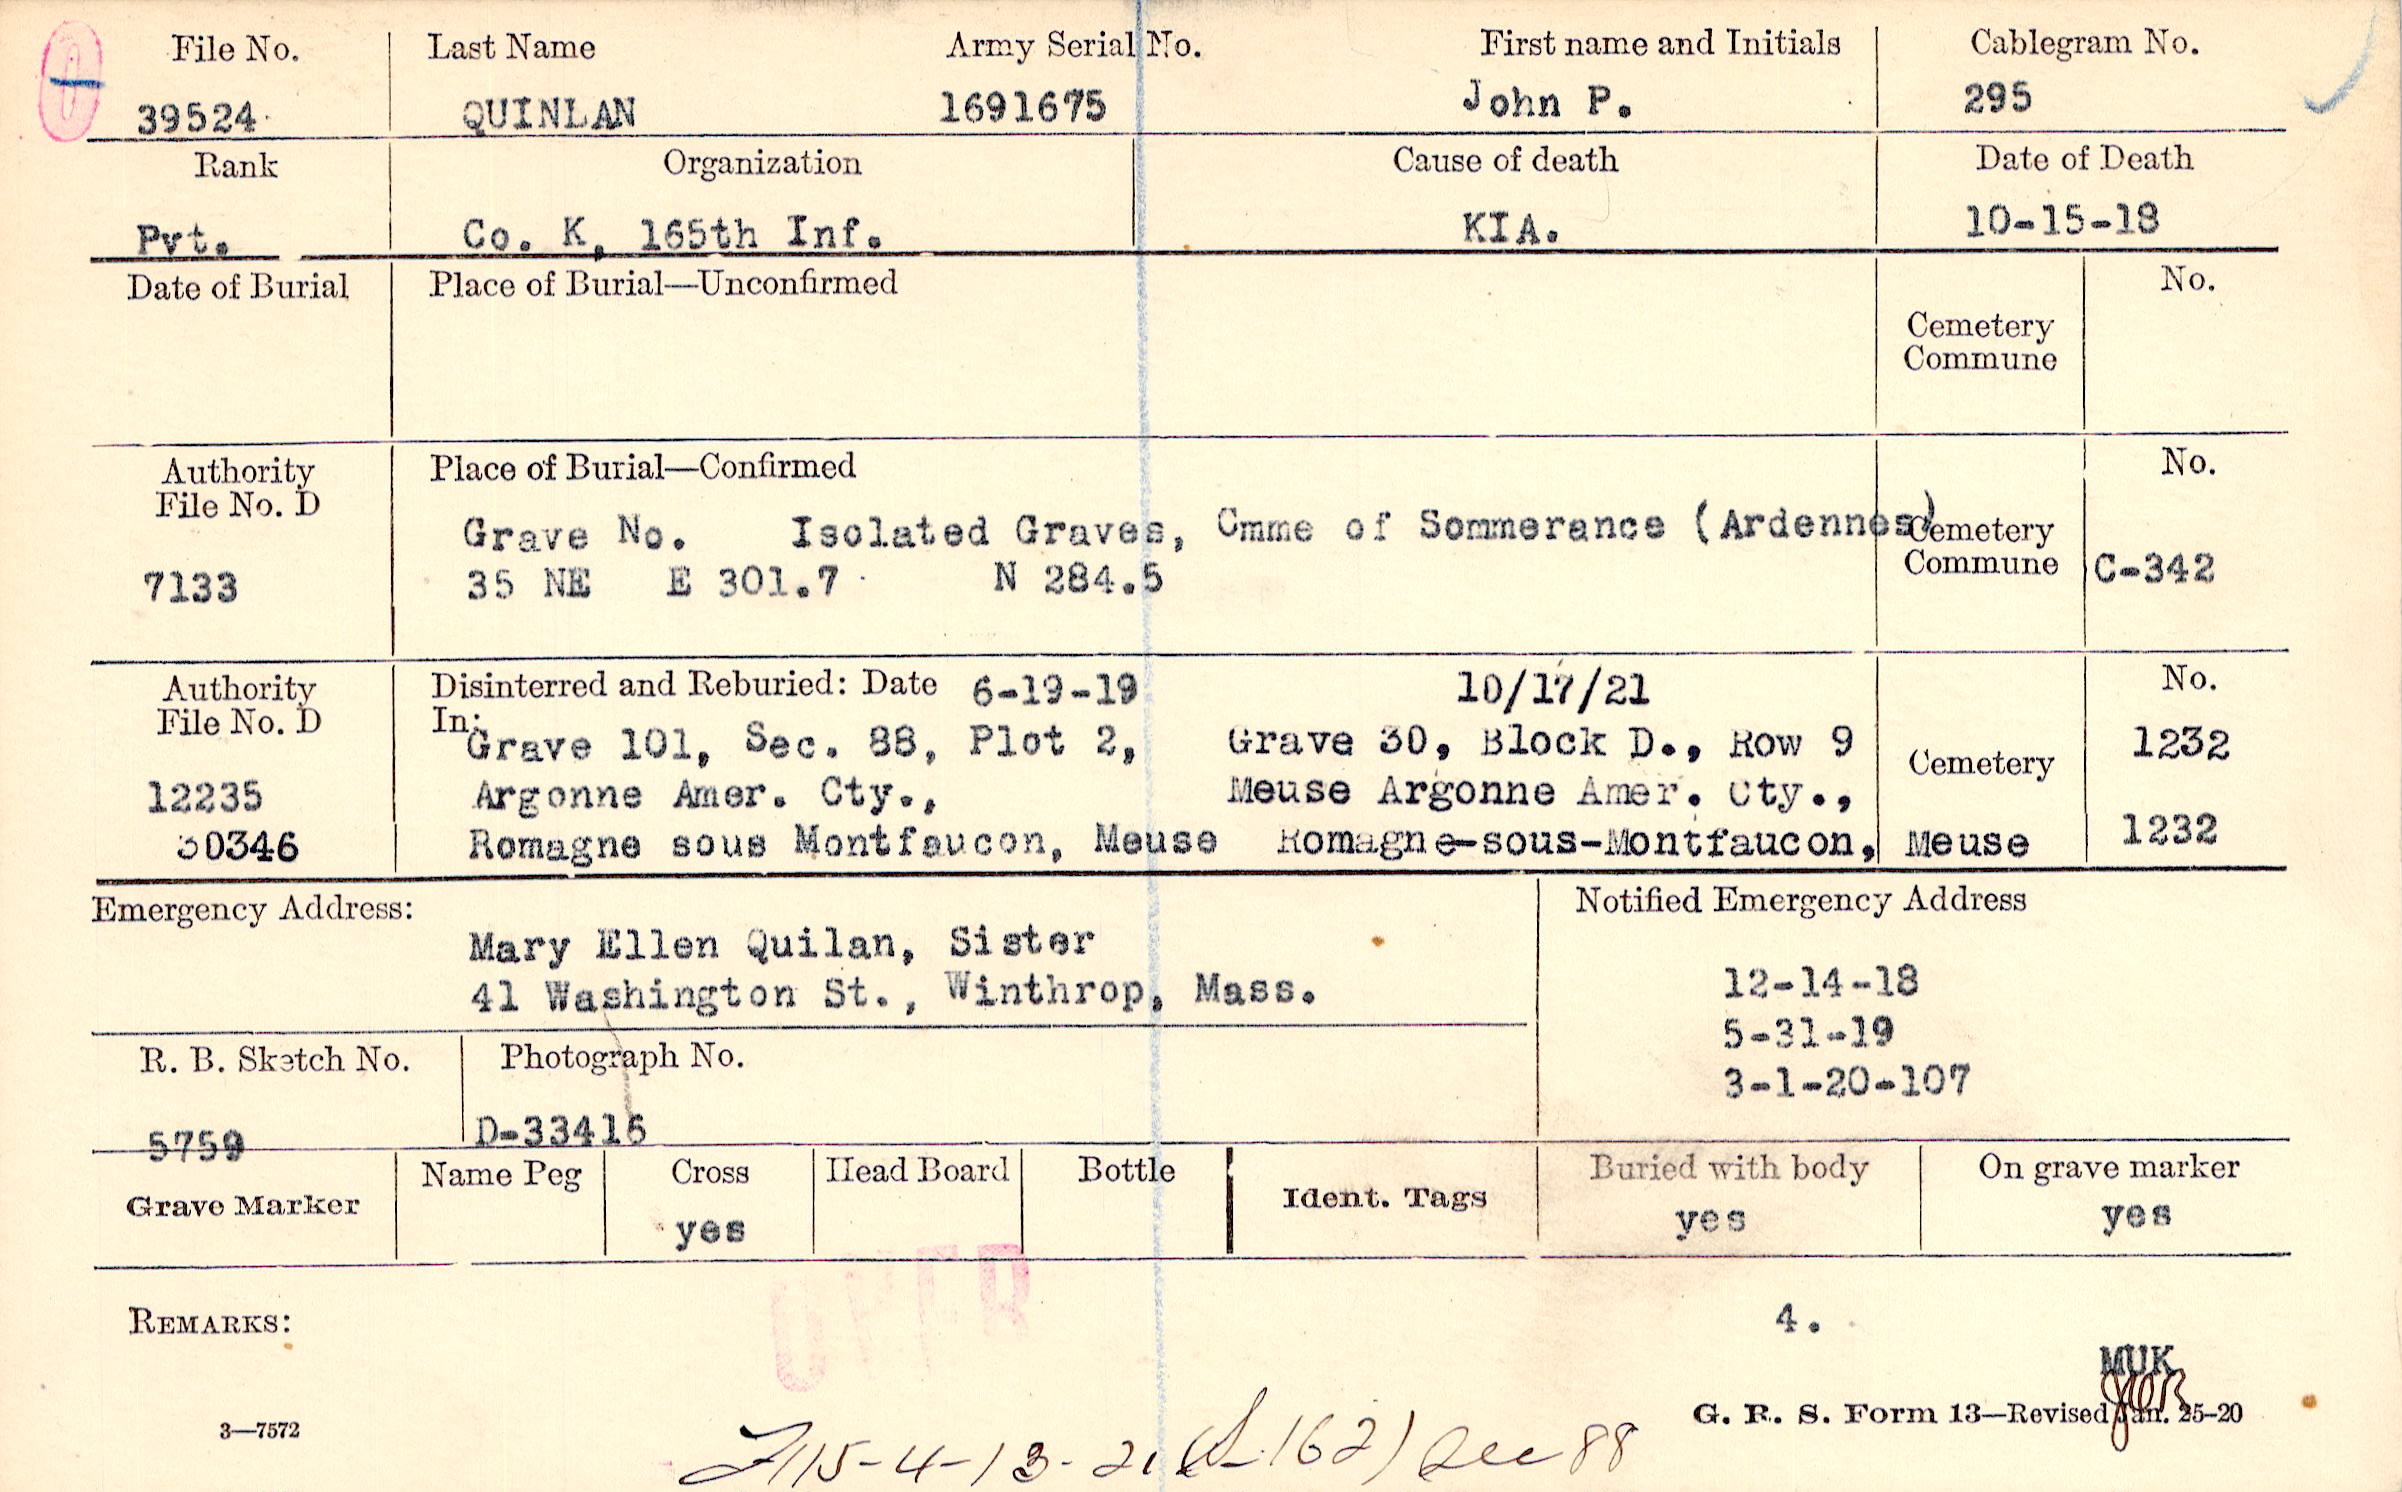 File No. Last Name Army Serial No. First name and Initials Cablegram No.
39524 QUINLAN 1691675 John P. 295
Rank Organization Cause of death Date of Death
Pvt. Co. K, 165th Inf. KIA. 10-15-18
Date of Burial Place of Burial—Unconfirmed No.
Cemetery
Commune
Authority Place of Burial—Confirmed No.
File No. D
Grave No. Isolated Graves, Cmme of Sommerance (Ardennes) Cemetery
7133 35 NE E 301.7 N 284.5 Commune C-342
Authority Disinterred and Reburied: Date 6-19-19 10/17/21 No.
File No. D In:
Grave 101, Sec. 88, Plot 2, Grave 30, Block D., Row 9 Cemetery 1232
12235 Argonne Amer. Cty., Meuse Argonne Amer. Cty.,
30346 Romagne sous Montfaucon, Meuse Romagne-sous-Montfaucon, Meuse 1232
Emergency Address: Notified Emergency Address
Mary Ellen Quilan, Sister
41 Washington St., Winthrop, Mass. 12-14-18
5-31-19
3-1-20-107
R. B. Sketch No. Photograph No.
5759 D-33416
Grave Marker Name Peg Cross Head Board Bottle Ident. Tags Buried with body On grave marker
yes yes yes
REMARKS: 4.
MUK
3—7572 G. R. S. Form 13—Revised Jan. 25-20
15-4-13-21 162) Sec 88